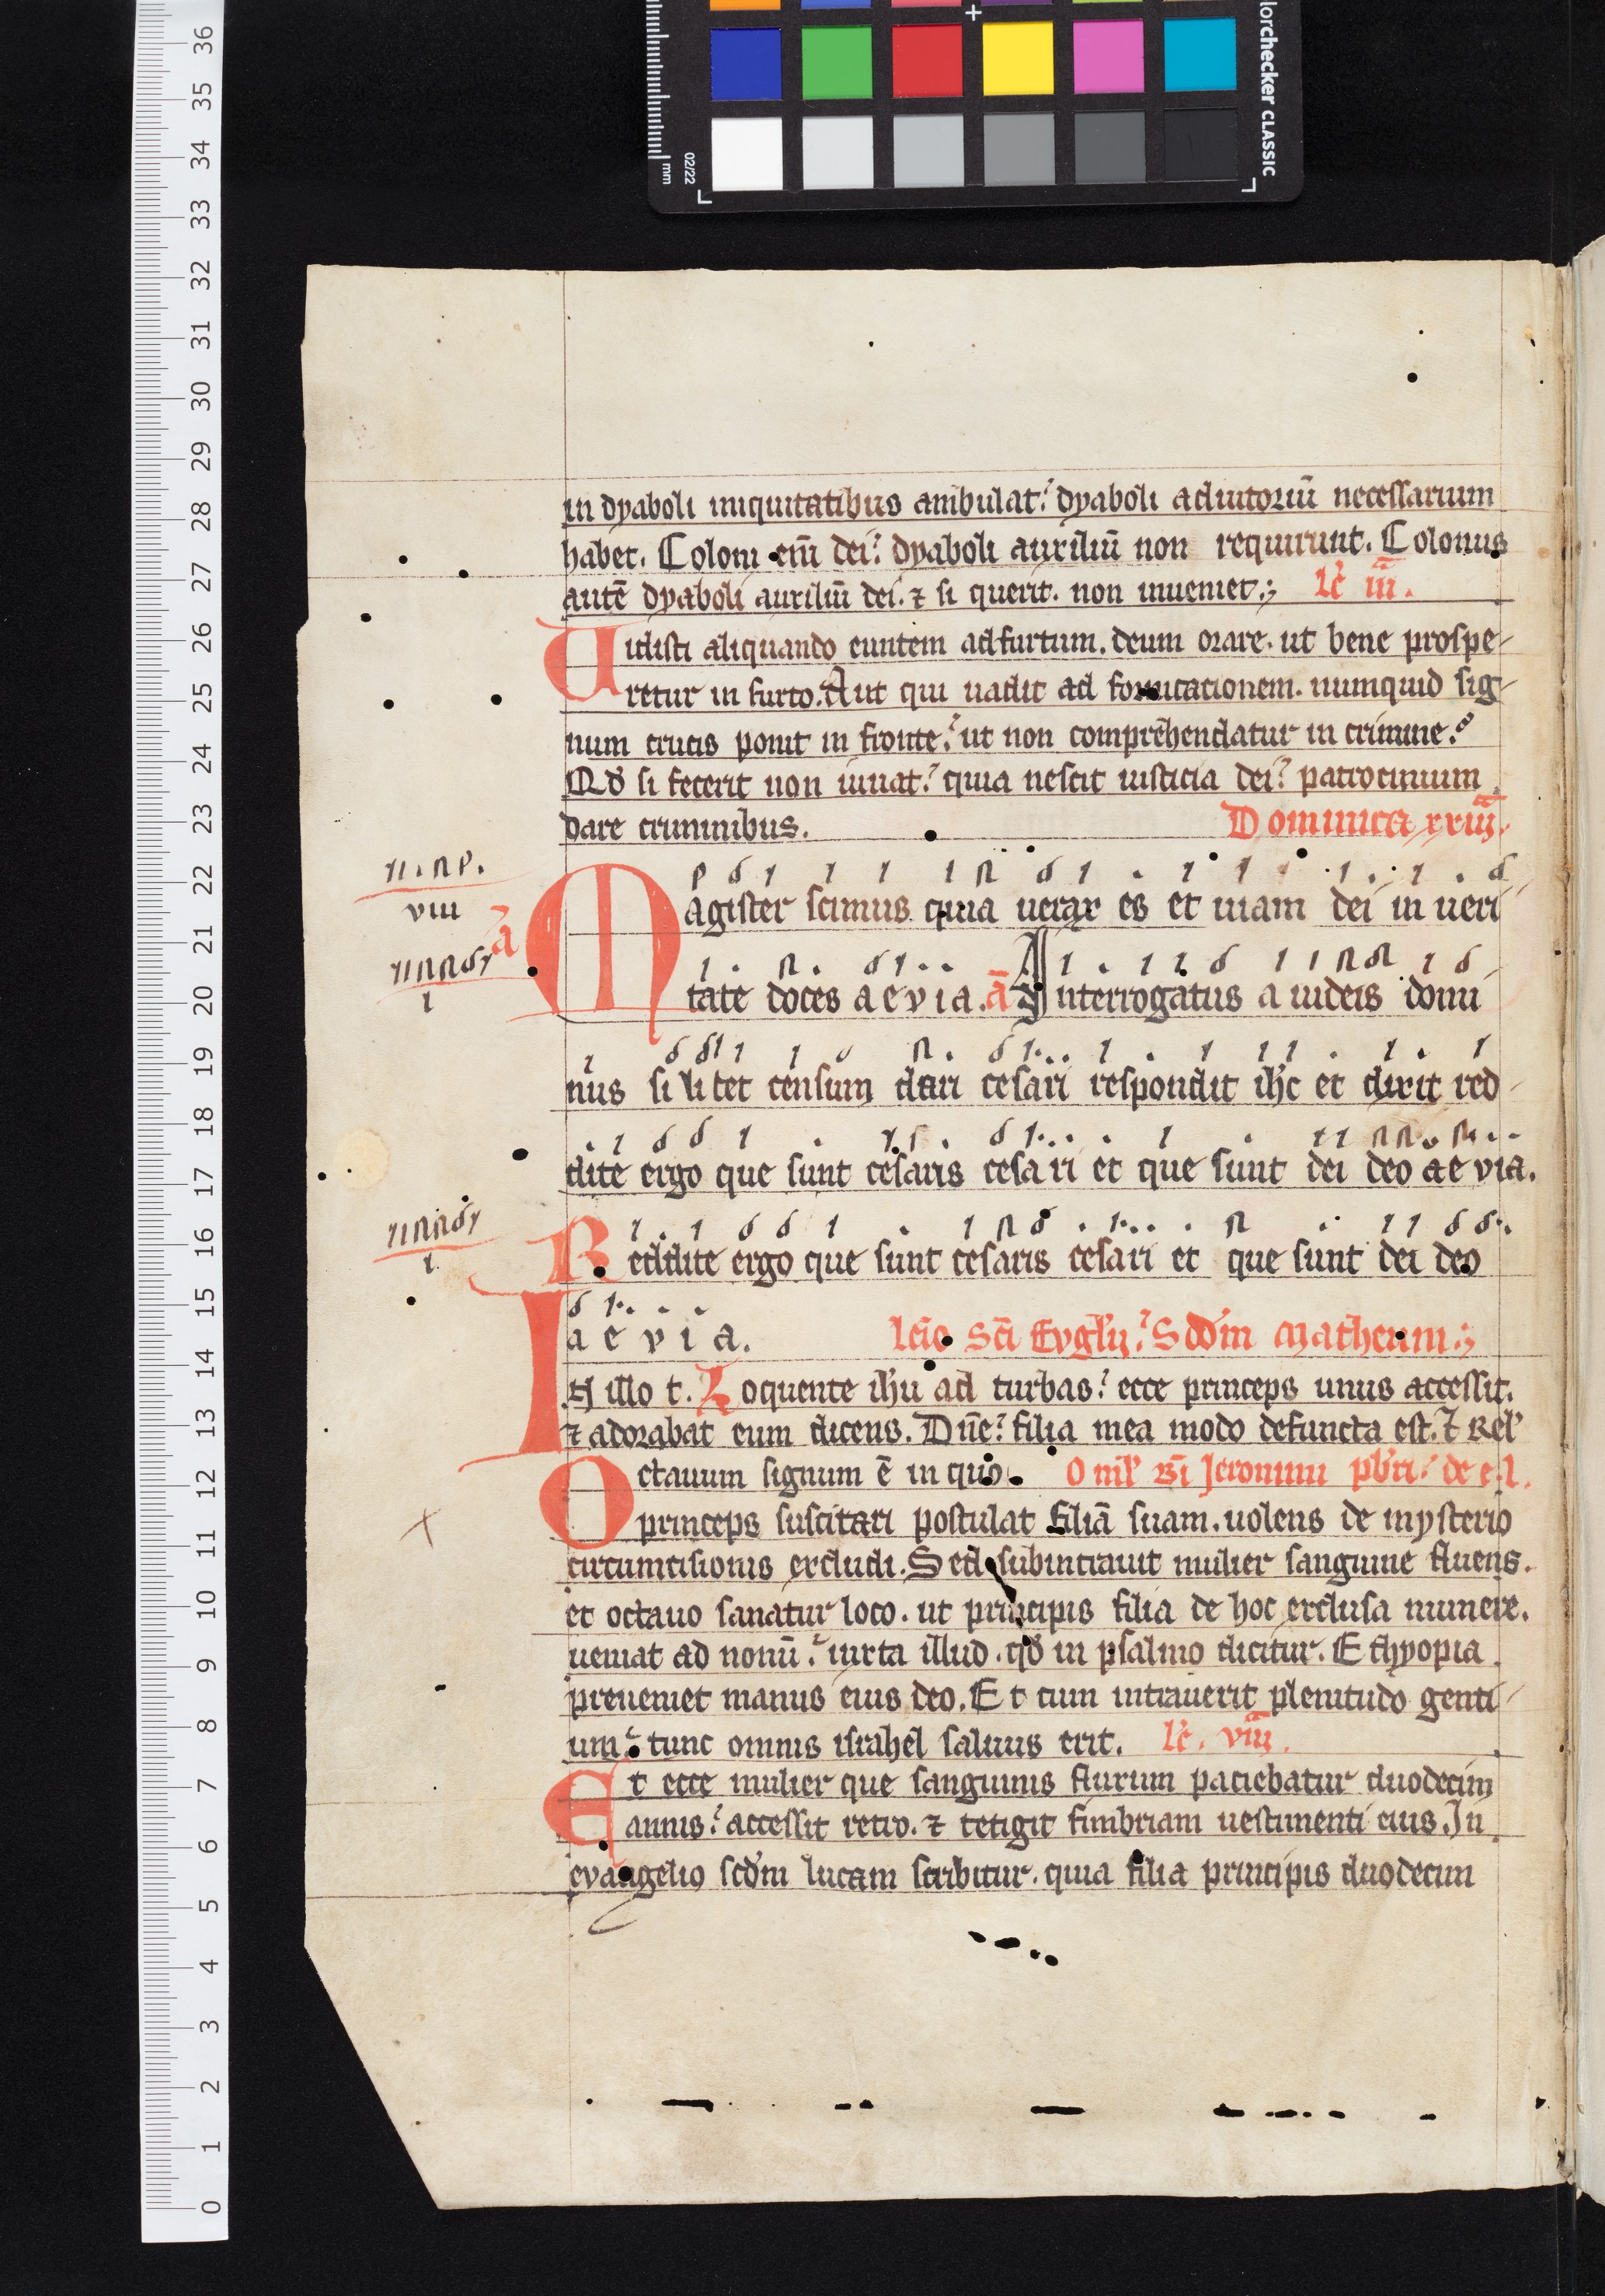 in dyaboli iniquitatibus ambulat. dyaboli adiutoriū necessarium
habet. Coloni eni̅ dei. dyaboli auxiliū non requirunt. Colonus
autē dyaboli auxiliū dei. ⁊ si querit. non inueniet.; lc̄ iii.
Uidisti aliquando euntem ad furtum. deum orare. ut bene prospe-
retur in furto. Aut qui uadit ad fornicacionem. numquid sig-
num crucis ponit in fronte. ut non comprehendatur in crimine.
Qd̓ si fecerit non iuuat. quia nescit iusticia dei. patrocinium
dare criminibus. Dominica xxiii.
viii
ā
Magister scimus quia uerax es et uiam dei in ueri-
tate doces a e v i a. ā Interrogatus a iudeis domi-
i
nus si licet censum dari cesari respondit ih̄c et dixit red-
dite ergo que sunt cesaris cesari et que sunt dei deo a e via.
Reddite ergo que sunt cesaris cesari et que sunt dei deo
i
a e v i a. lcīo sc̄i Evg̅ly. Scd̓m Matheum.;
IN illo t. Loquente ih̄u ad turbas. ecce princeps unus accessit.
⁊ adorabat eum dicens. Dn̄e. filia mea modo defuncta est. ⁊ Rel̓
Octauum signum ē in quo Omīl̓ b̄i Jeronimi pb̓ri. de e. l.
princeps suscitari postulat filiā suam. uolens de mysterio
circumcisionis excludi. Sed subintrauit mulier sanguine fluens.
et octauo sanatur loco. ut principis filia de hoc exclusa numere.
ueniat ad nonū. iuxta illud. qd̓ in psalmo dicitur. Ethyopia
preueniet manus eius deo. Et cum intrauerit plenitudo genti-
um. tunc omnis israhel saluus erit. lc̄. viii.
Et ecce mulier que sanguinis fluxum paciebatur duodecim
annis. accessit retro. ⁊ tetigit fimbriam uestimenti eius. In
evangelio scd̓m lucam scribitur. quia filia principis duodecim
36
35
34
33
32
31
30
29
28
27
26
25
24
23
22
21
20
19
18
17
16
15
14
13
12
11
10
9
8
7
6
5
4
3
2
1
0
mm
02/22
lorchecker CLASSIC